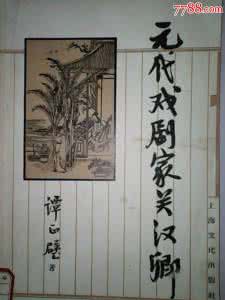 7788.com
元代戏剧家关汉卿
谭正璧 著
上海文化出版社